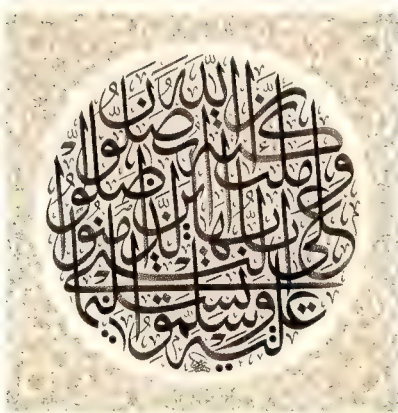 إن الله وملائكته يصلون على النبي يا أيها الذين آمنوا صلوا عليه وسلموا تسليما